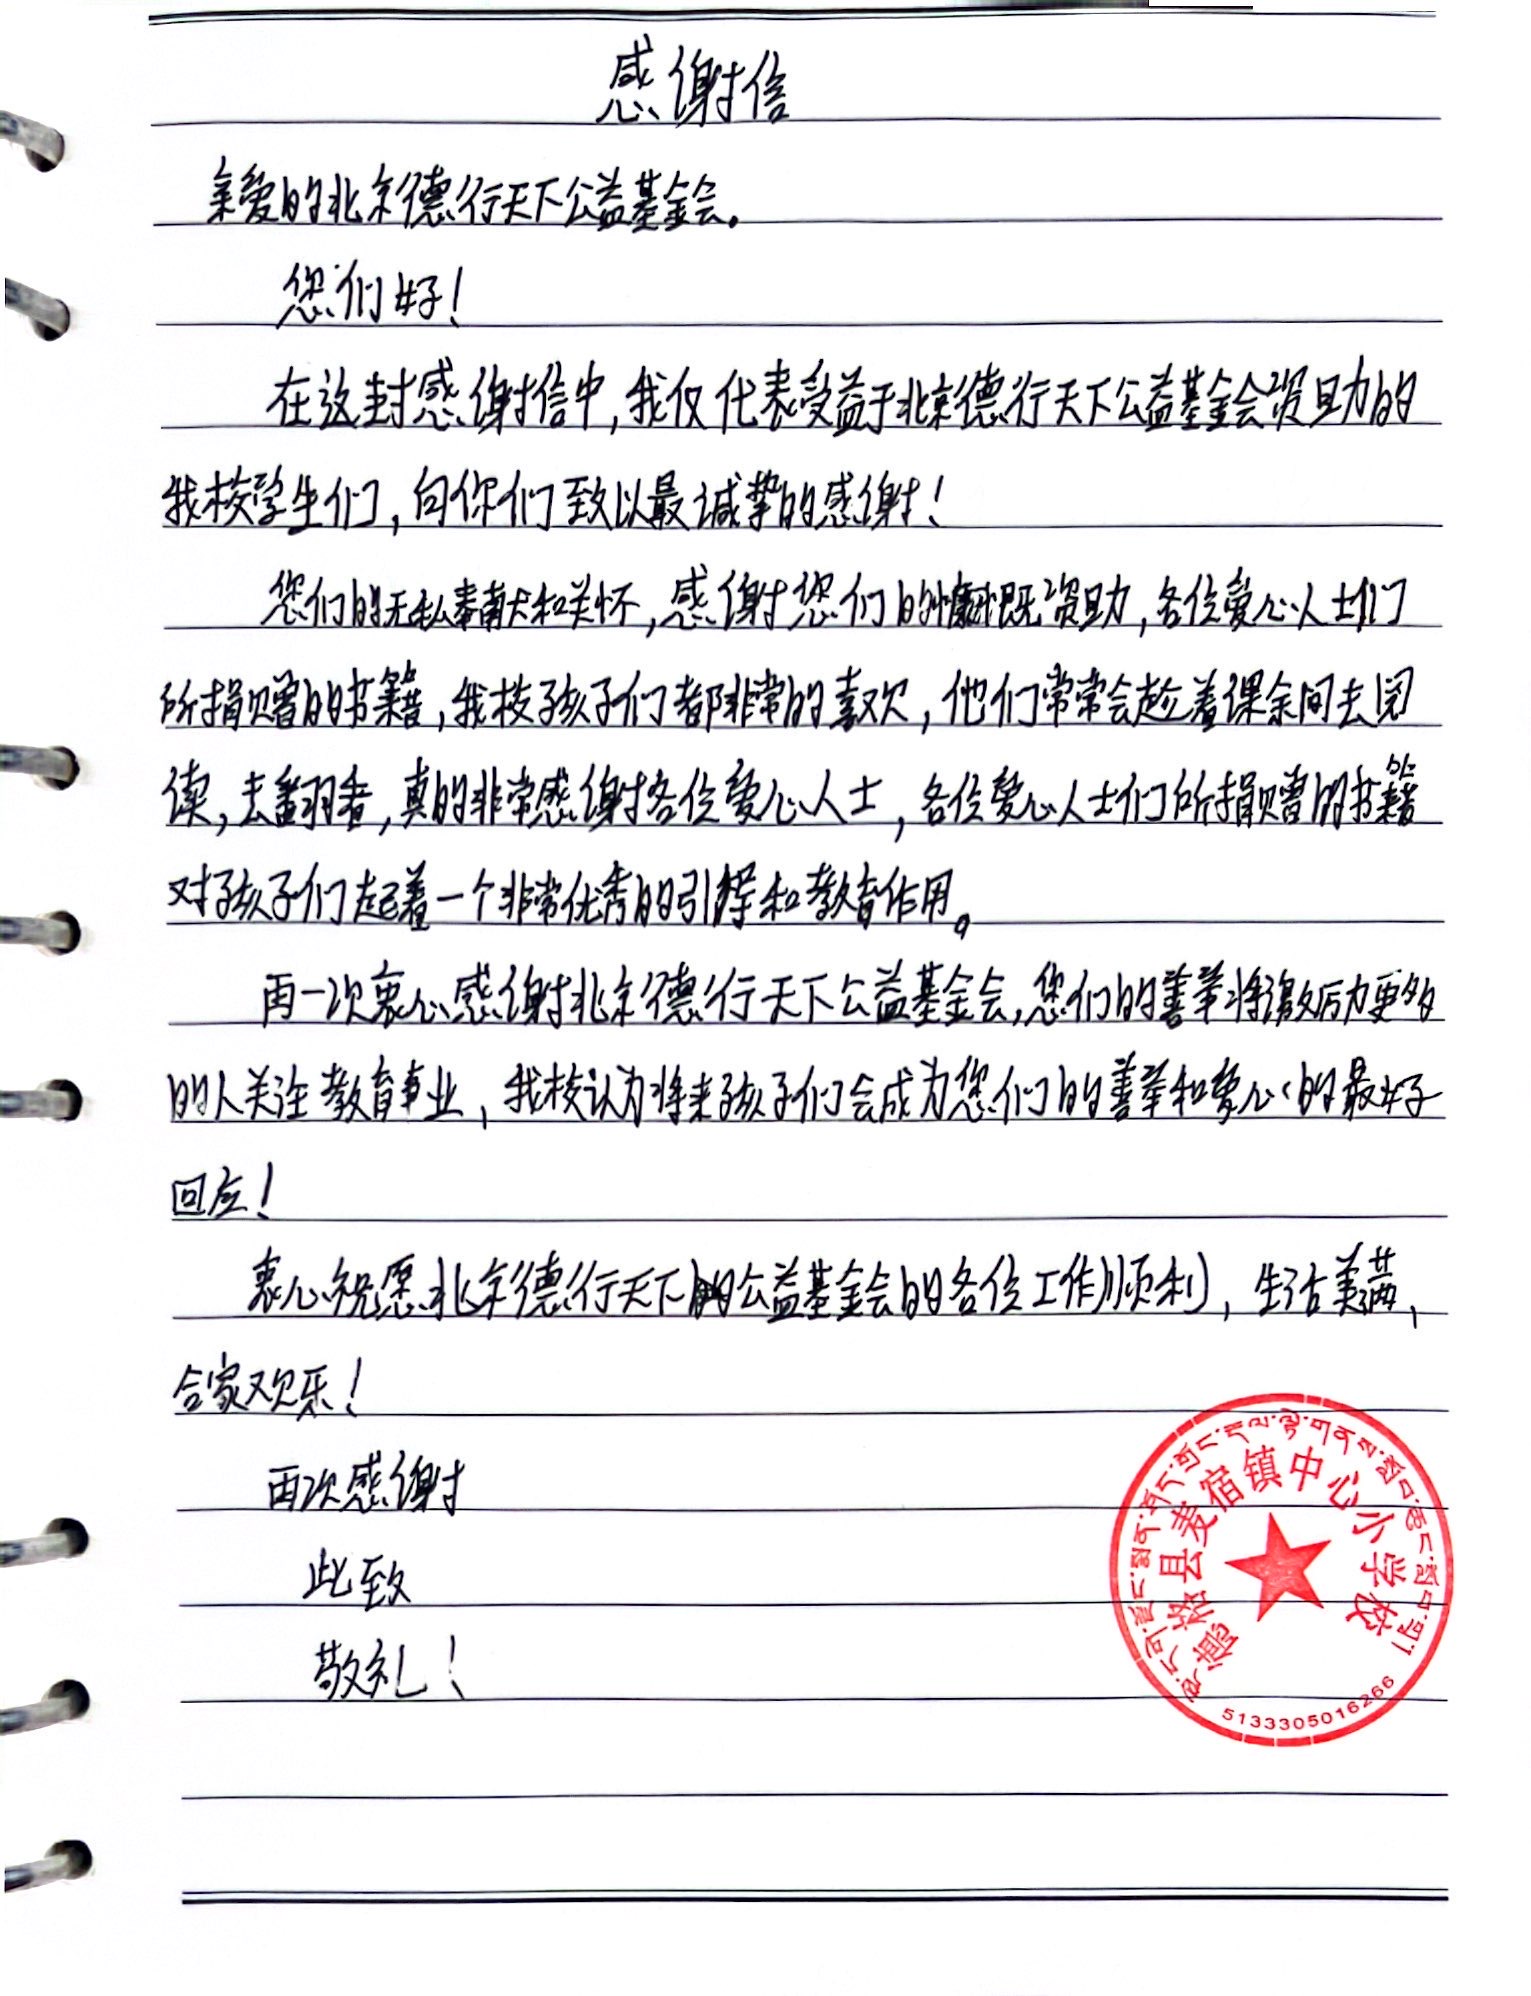 感谢信
亲爱的北京德行天下公益基金会。
您们好！
在这封感谢信中，我仅代表受益于北京德行天下公益基金会资助的
我校学生们，向你们致以最诚挚的感谢！
您们的无私奉献和关怀，感谢您们的慷慨资助，各位爱心人士们
所捐赠的书籍，我校孩子们都非常的喜欢，他们常常会趁着课余间去阅
读，去翻看，真的非常感谢各位爱心人士，各位爱心人士们所捐赠的书籍
对孩子们起着一个非常优秀的引导和教育作用。
再一次衷心感谢北京德行天下公益基金会，您们的善举将激励更多
的人关注教育事业，我校认为将来孩子们会成为您们的善举和爱心的最好
回应！
衷心祝愿北京德行天下公益基金会的各位工作顺利，生活美满，
合家欢乐！
再次感谢
此致
敬礼！
德格县麦宿镇中心小学校
5133305016266